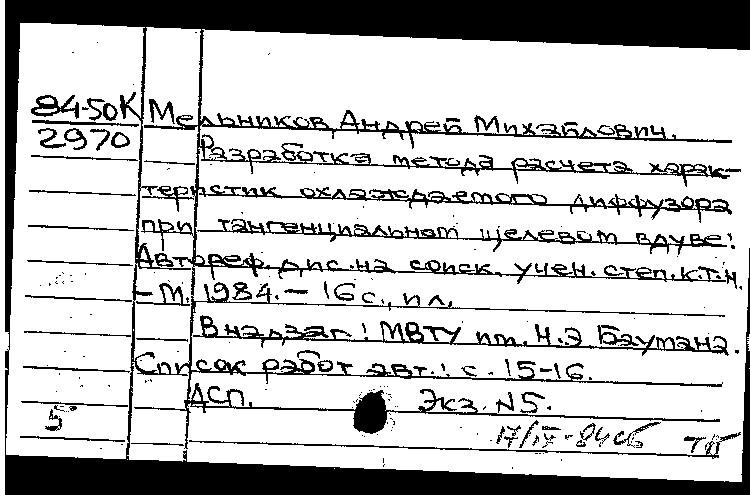 84-50К Мельников, Андрей Михайлович.
2970
Разработка метода расчета харак-
теристик охлаждаемого диффузора
при тангенциальном щелевом вдуве:
Автореф. дис. на соиск. учен. степ. к.т.н.
– М. 1984. – 16 с., ил.
В надзаг.: МВТУ им. Н.Э Баумана.
Список работ авт.: с. 15-16.
ДСП. Экз. N5.
5
17/IV-84 сб ТП